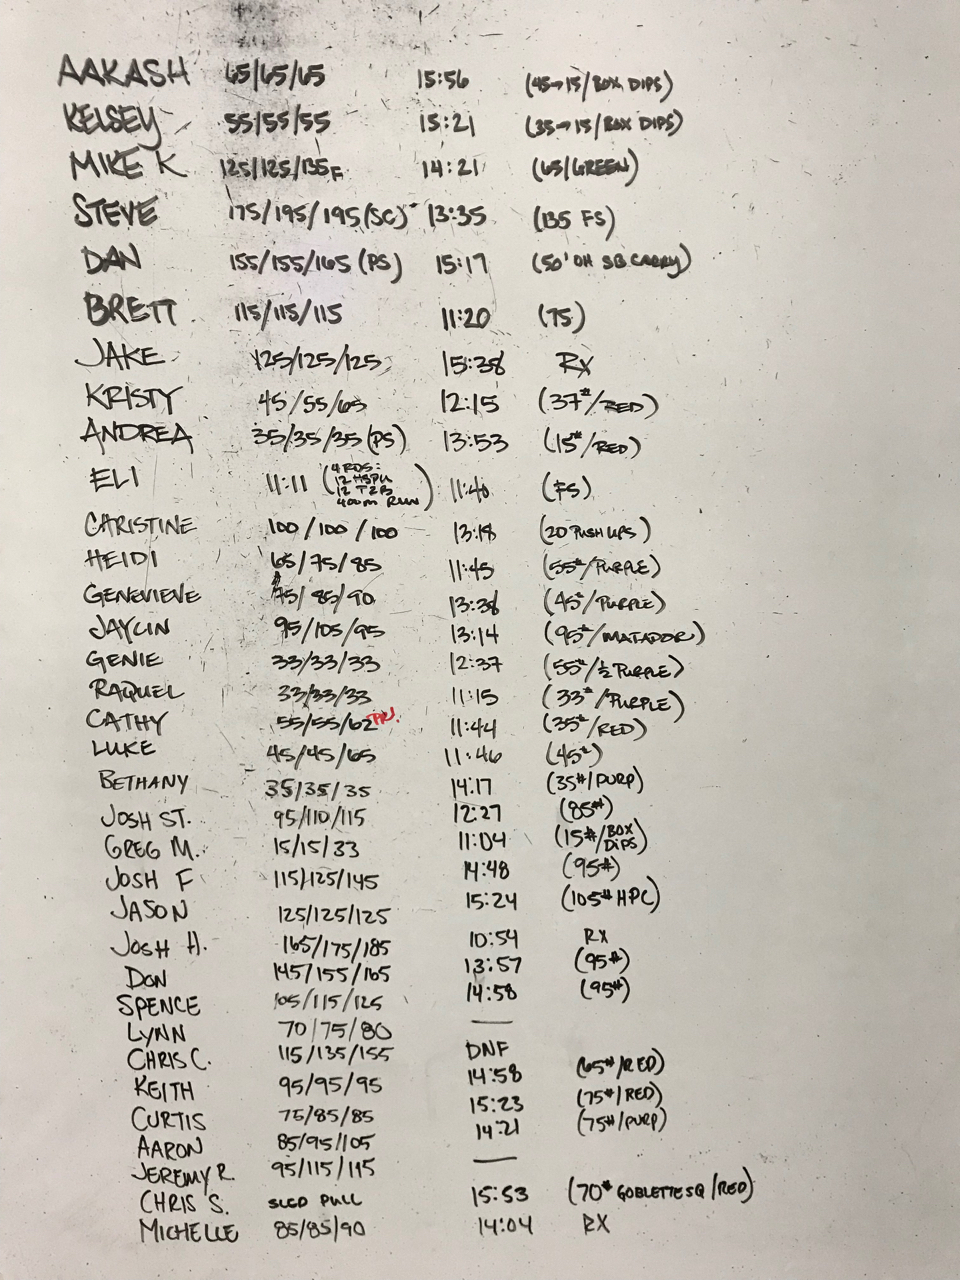 AAKASH 65/65/65 15:56 (45→15/BOX DIPS)
KELSEY 55/55/55 15:21 (35→15/BOX DIPS)
MIKE K 125/125/135F 14:21 (65/GREEN)
STEVE 175/195/195 (SC) 13:35 (135 FS)
DAN 155/155/165 (PS) 15:17 (50' OH SB CARRY)
BRETT 115/115/115 11:20 (75)
JAKE 125/125/125 15:38 RX
KRISTY 45/55/65 12:15 (37#/RED)
ANDREA 35/35/35 (PS) 13:53 (15#/RED)
ELI 11:11 (4 RDS: 12 HSPU 12 T2B 400M RUN) 11:40 (FS)
CHRISTINE 100/100/100 13:18 (20 PUSH UPS)
HEIDI 65/75/85 11:45 (55#/PURPLE)
GENEVIEVE 75/85/90 13:38 (45#/PURPLE)
JAYLIN 95/105/95 13:14 (95#/MATADOR)
GENIE 33/33/33 12:37 (55#/½ PURPLE)
RAQUEL 33/33/33 11:15 (33#/PURPLE)
CATHY 55/55/62 PR! 11:44 (35#/RED)
LUKE 45/45/65 11:46 (45#)
BETHANY 35/35/35 14:17 (35#/PURP)
JOSH ST. 95/110/115 12:27 (85#)
GREG M. 15/15/33 11:04 (15#/BOX DIPS)
JOSH F 115/125/145 14:48 (95#)
JASON 125/125/125 15:24 (105# HPC)
JOSH H. 165/175/185 10:54 RX
DON 145/155/165 13:57 (95#)
SPENCE 105/115/125 14:58 (95#)
LYNN 70/75/80 —
CHRIS C. 115/135/155 DNF
KEITH 95/95/95 14:58 (65#/RED)
CURTIS 75/85/85 15:23 (75#/RED)
AARON 85/95/105 14:21 (75#/PURP)
JEREMY R. 95/115/115 —
CHRIS S. SLED PULL 15:53 (70# GOBLETTE SQ/RED)
MICHELLE 85/85/90 14:04 RX